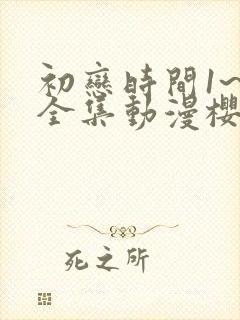 初戀時間1~
全集動漫櫻
死之所